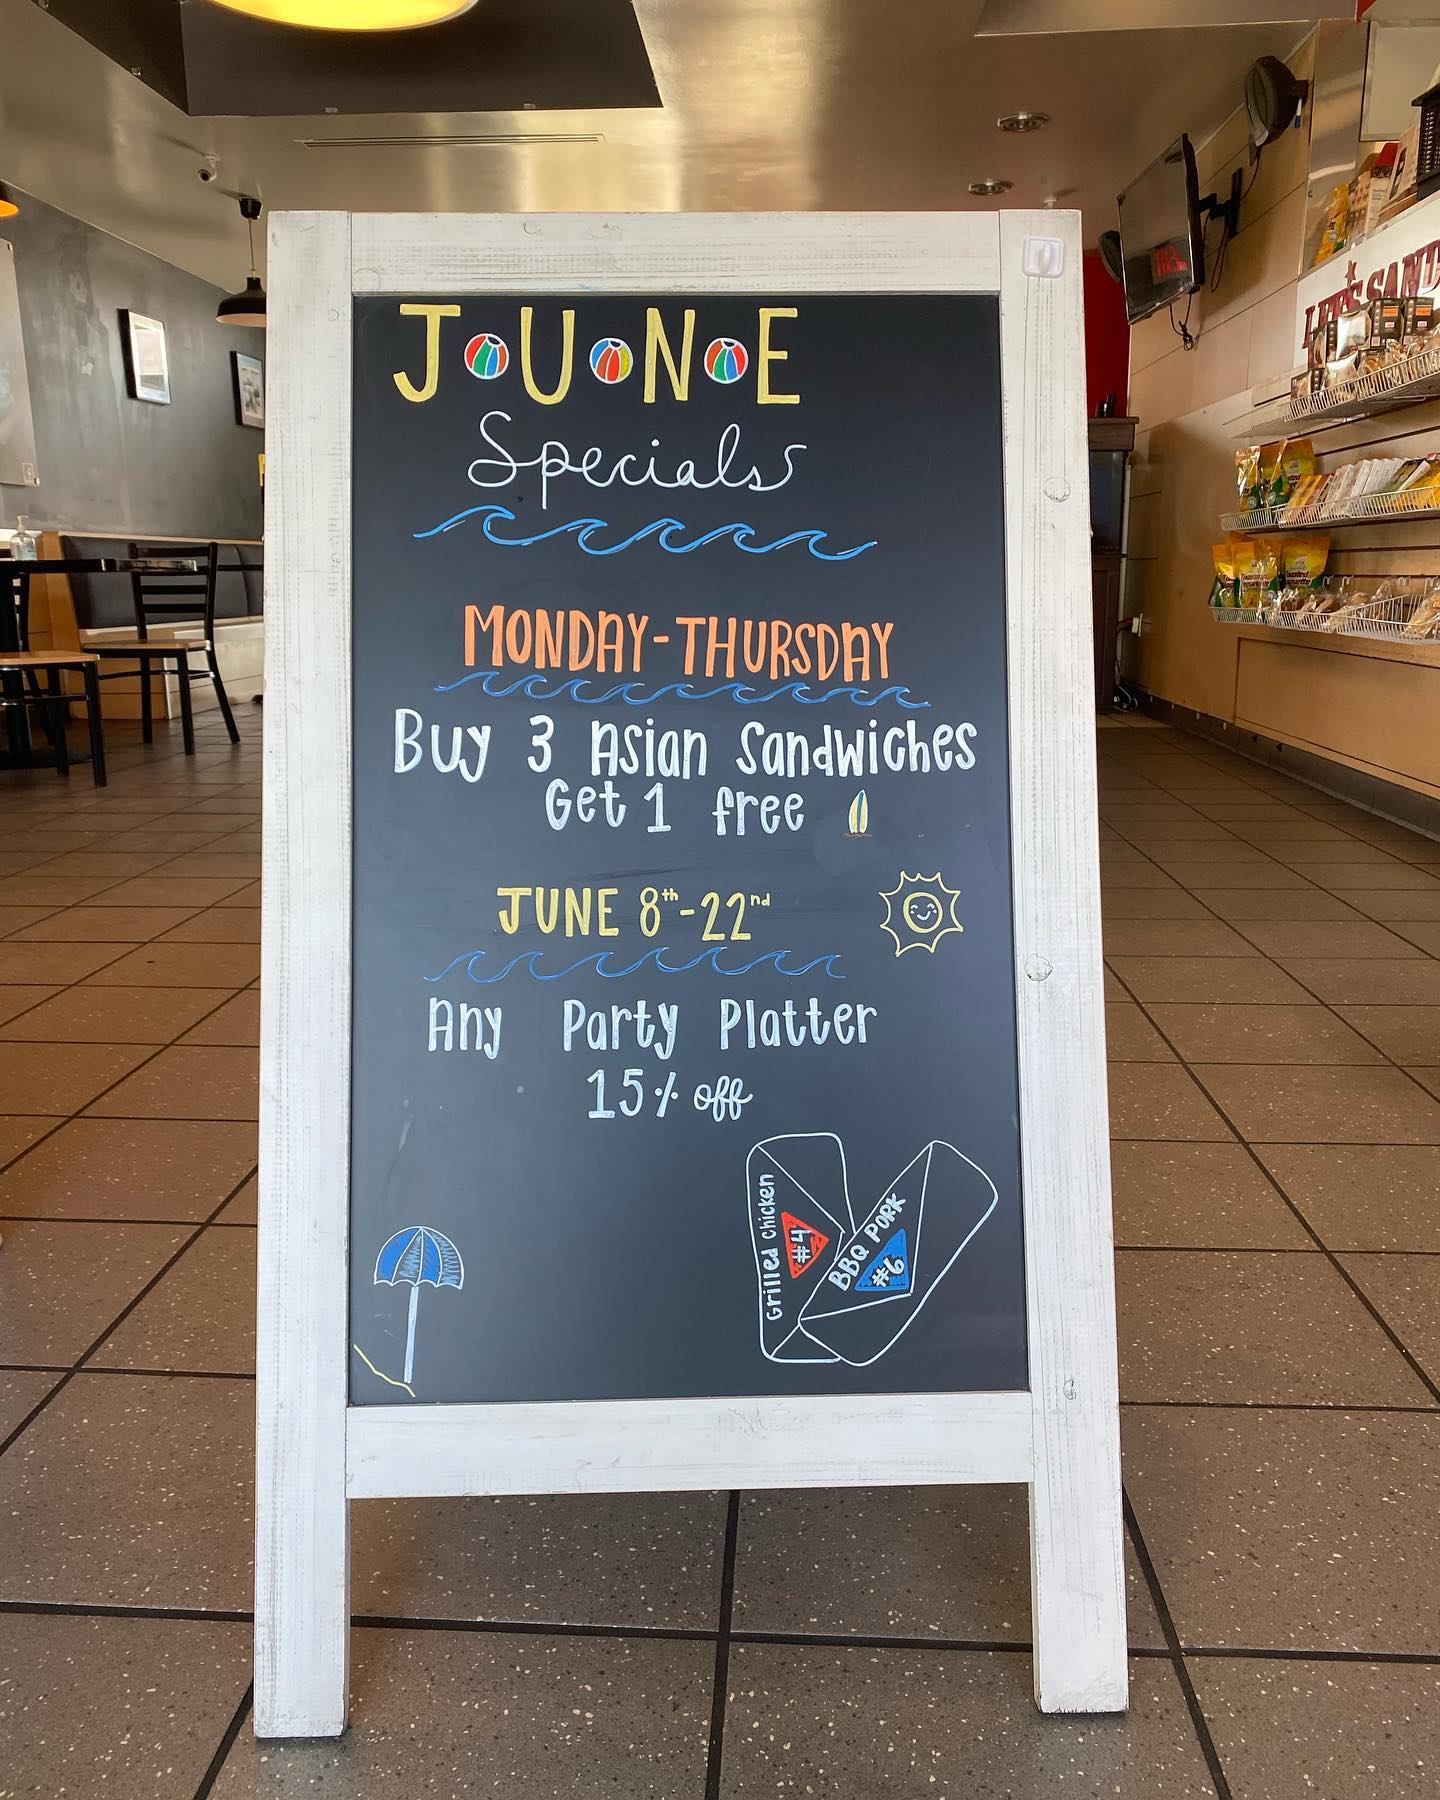 JUNE
Specials
MONDAY-THURSDAY
Buy 3 Asian Sandwiches
Get 1 free
JUNE 8th-22nd
Any Party Platter
15% off
Grilled Chicken
#4
BBQ PORK
#6
LEE'S SAND